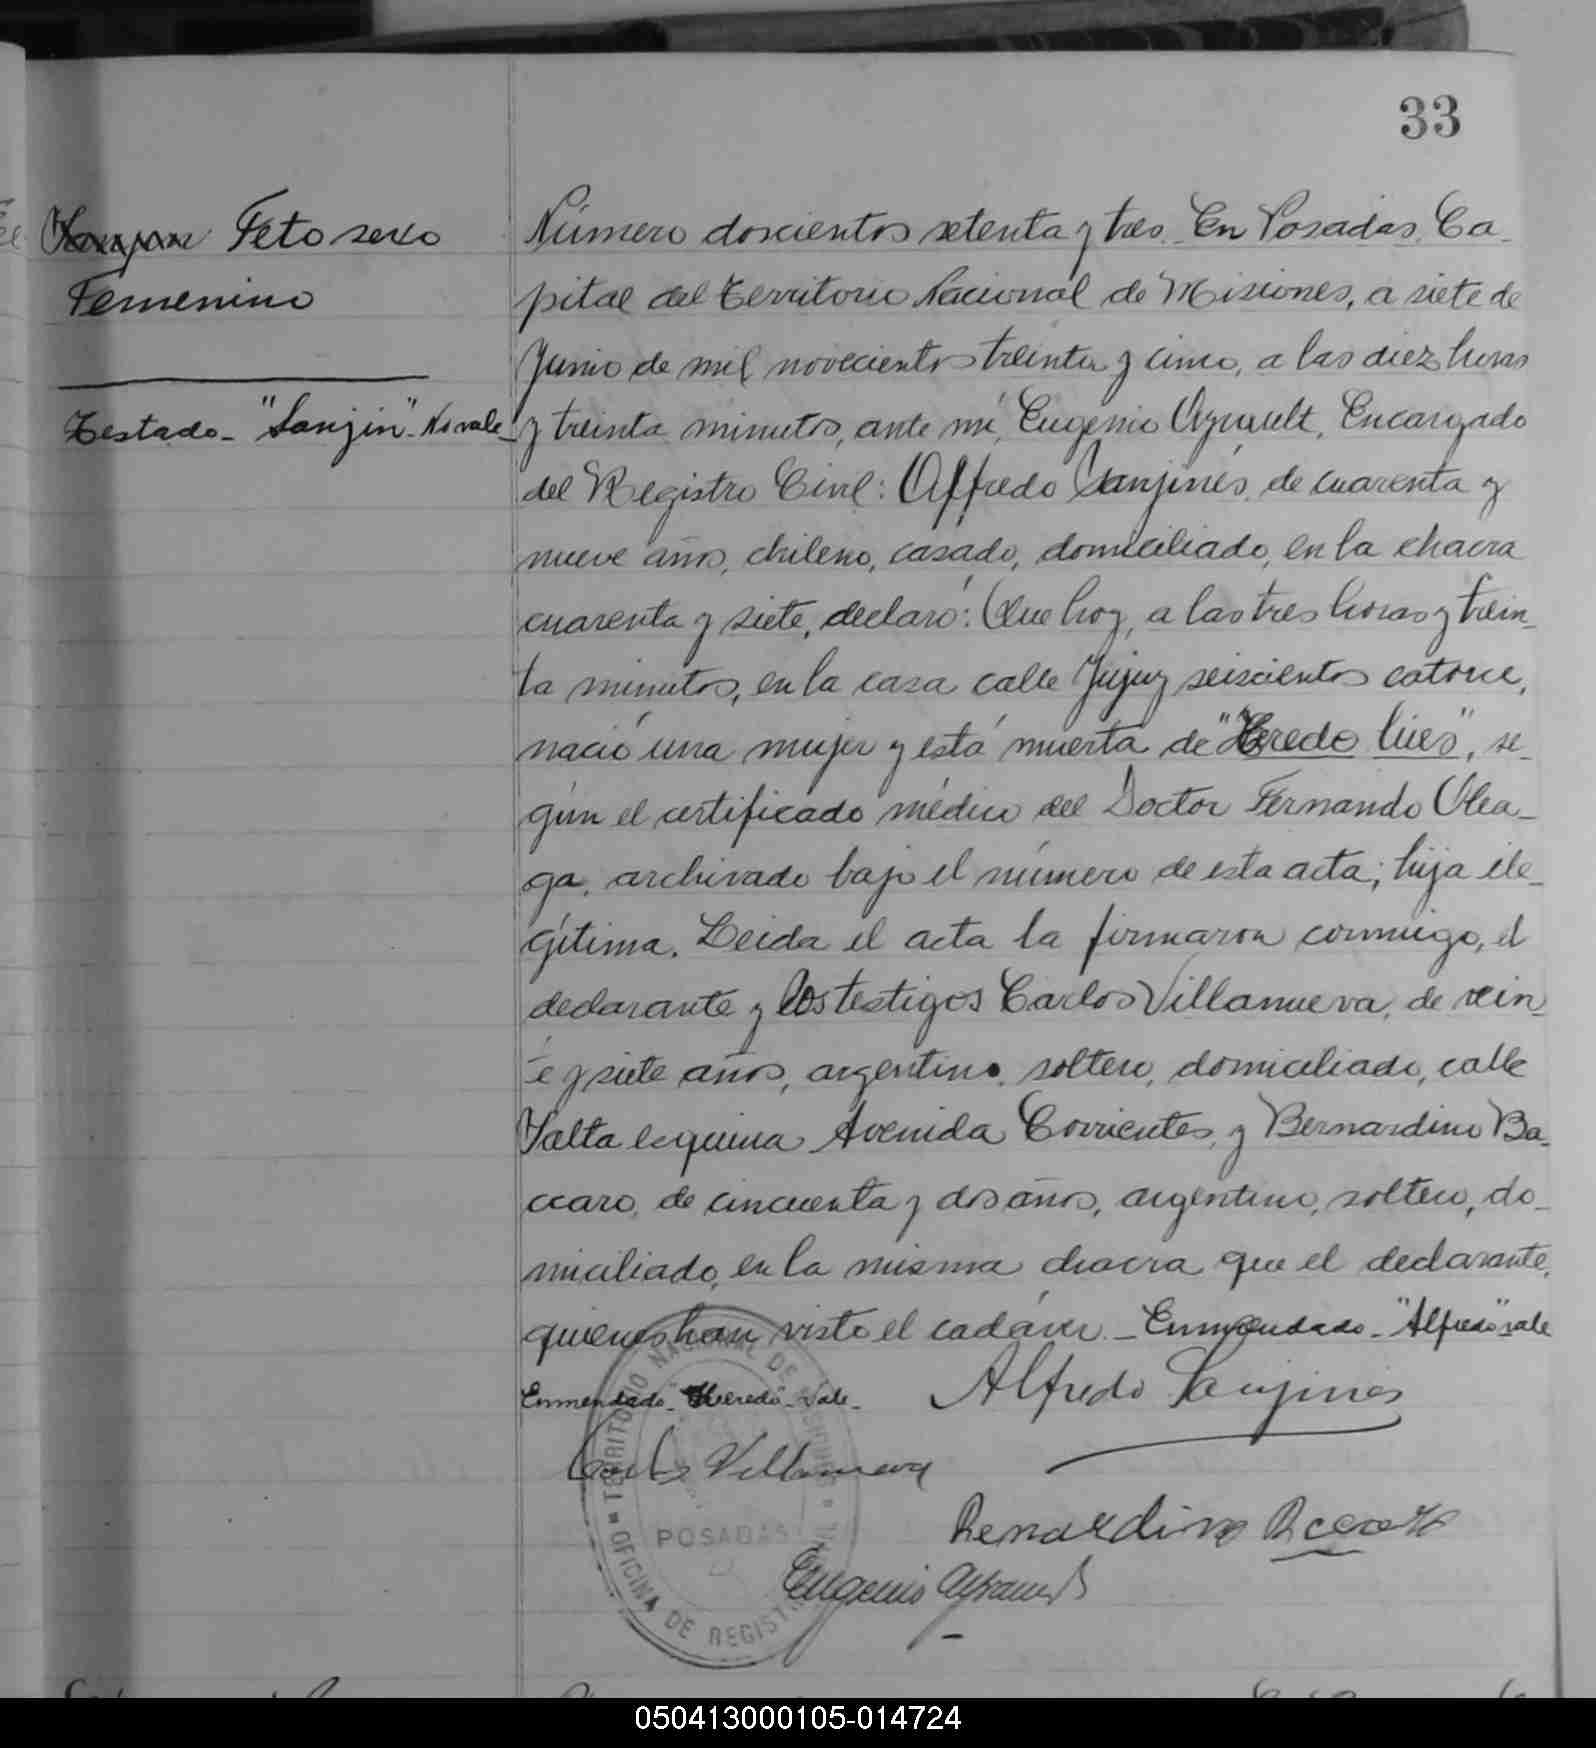 33
Feto sexo
Femenino
Testado - "Sanjin" - No vale -
Número doscientos setenta y tres. En Posadas, Ca-
pital del Territorio Nacional de Misiones, a siete de
Junio de mil novecientos treinta y cinco, a las diez horas
y treinta minutos, ante mí, Eugenio Ayrault, Encargado
del Registro Civil: Alfredo Sanjinés, de cuarenta y
nueve años, chileno, casado, domiciliado, en la chacra
cuarenta y siete, declaró: Que hoy, a las tres horas y trein-
ta minutos, en la casa calle Jujuy seiscientos catorce,
nació una mujer y está muerta de "Heredo lúes", se-
gún el certificado médico del Doctor Fernando Olea-
ga, archivado bajo el número de esta acta; hija ile-
gítima. Leída el acta la firmaron conmigo, el
declarante y los testigos Carlos Villanueva, de vein-
te y siete años, argentino, soltero, domiciliado, calle
Salta esquina Avenida Corrientes, y Bernardino Ba-
ccaro, de cincuenta y dos años, argentino, soltero, do-
miciliado, en la misma chacra que el declarante,
quienes han visto el cadáver. - Enmendado - "Alfredo" vale
Enmendado - "Heredo" - Vale -
Alfredo Sanjines
Carlos Villanueva
Bernardino
Eugenio Ayrault
TERRITORIO NACIONAL DE MISIONES
POSADAS
OFICINA DE REGISTRO CIVIL
050413000105-014724